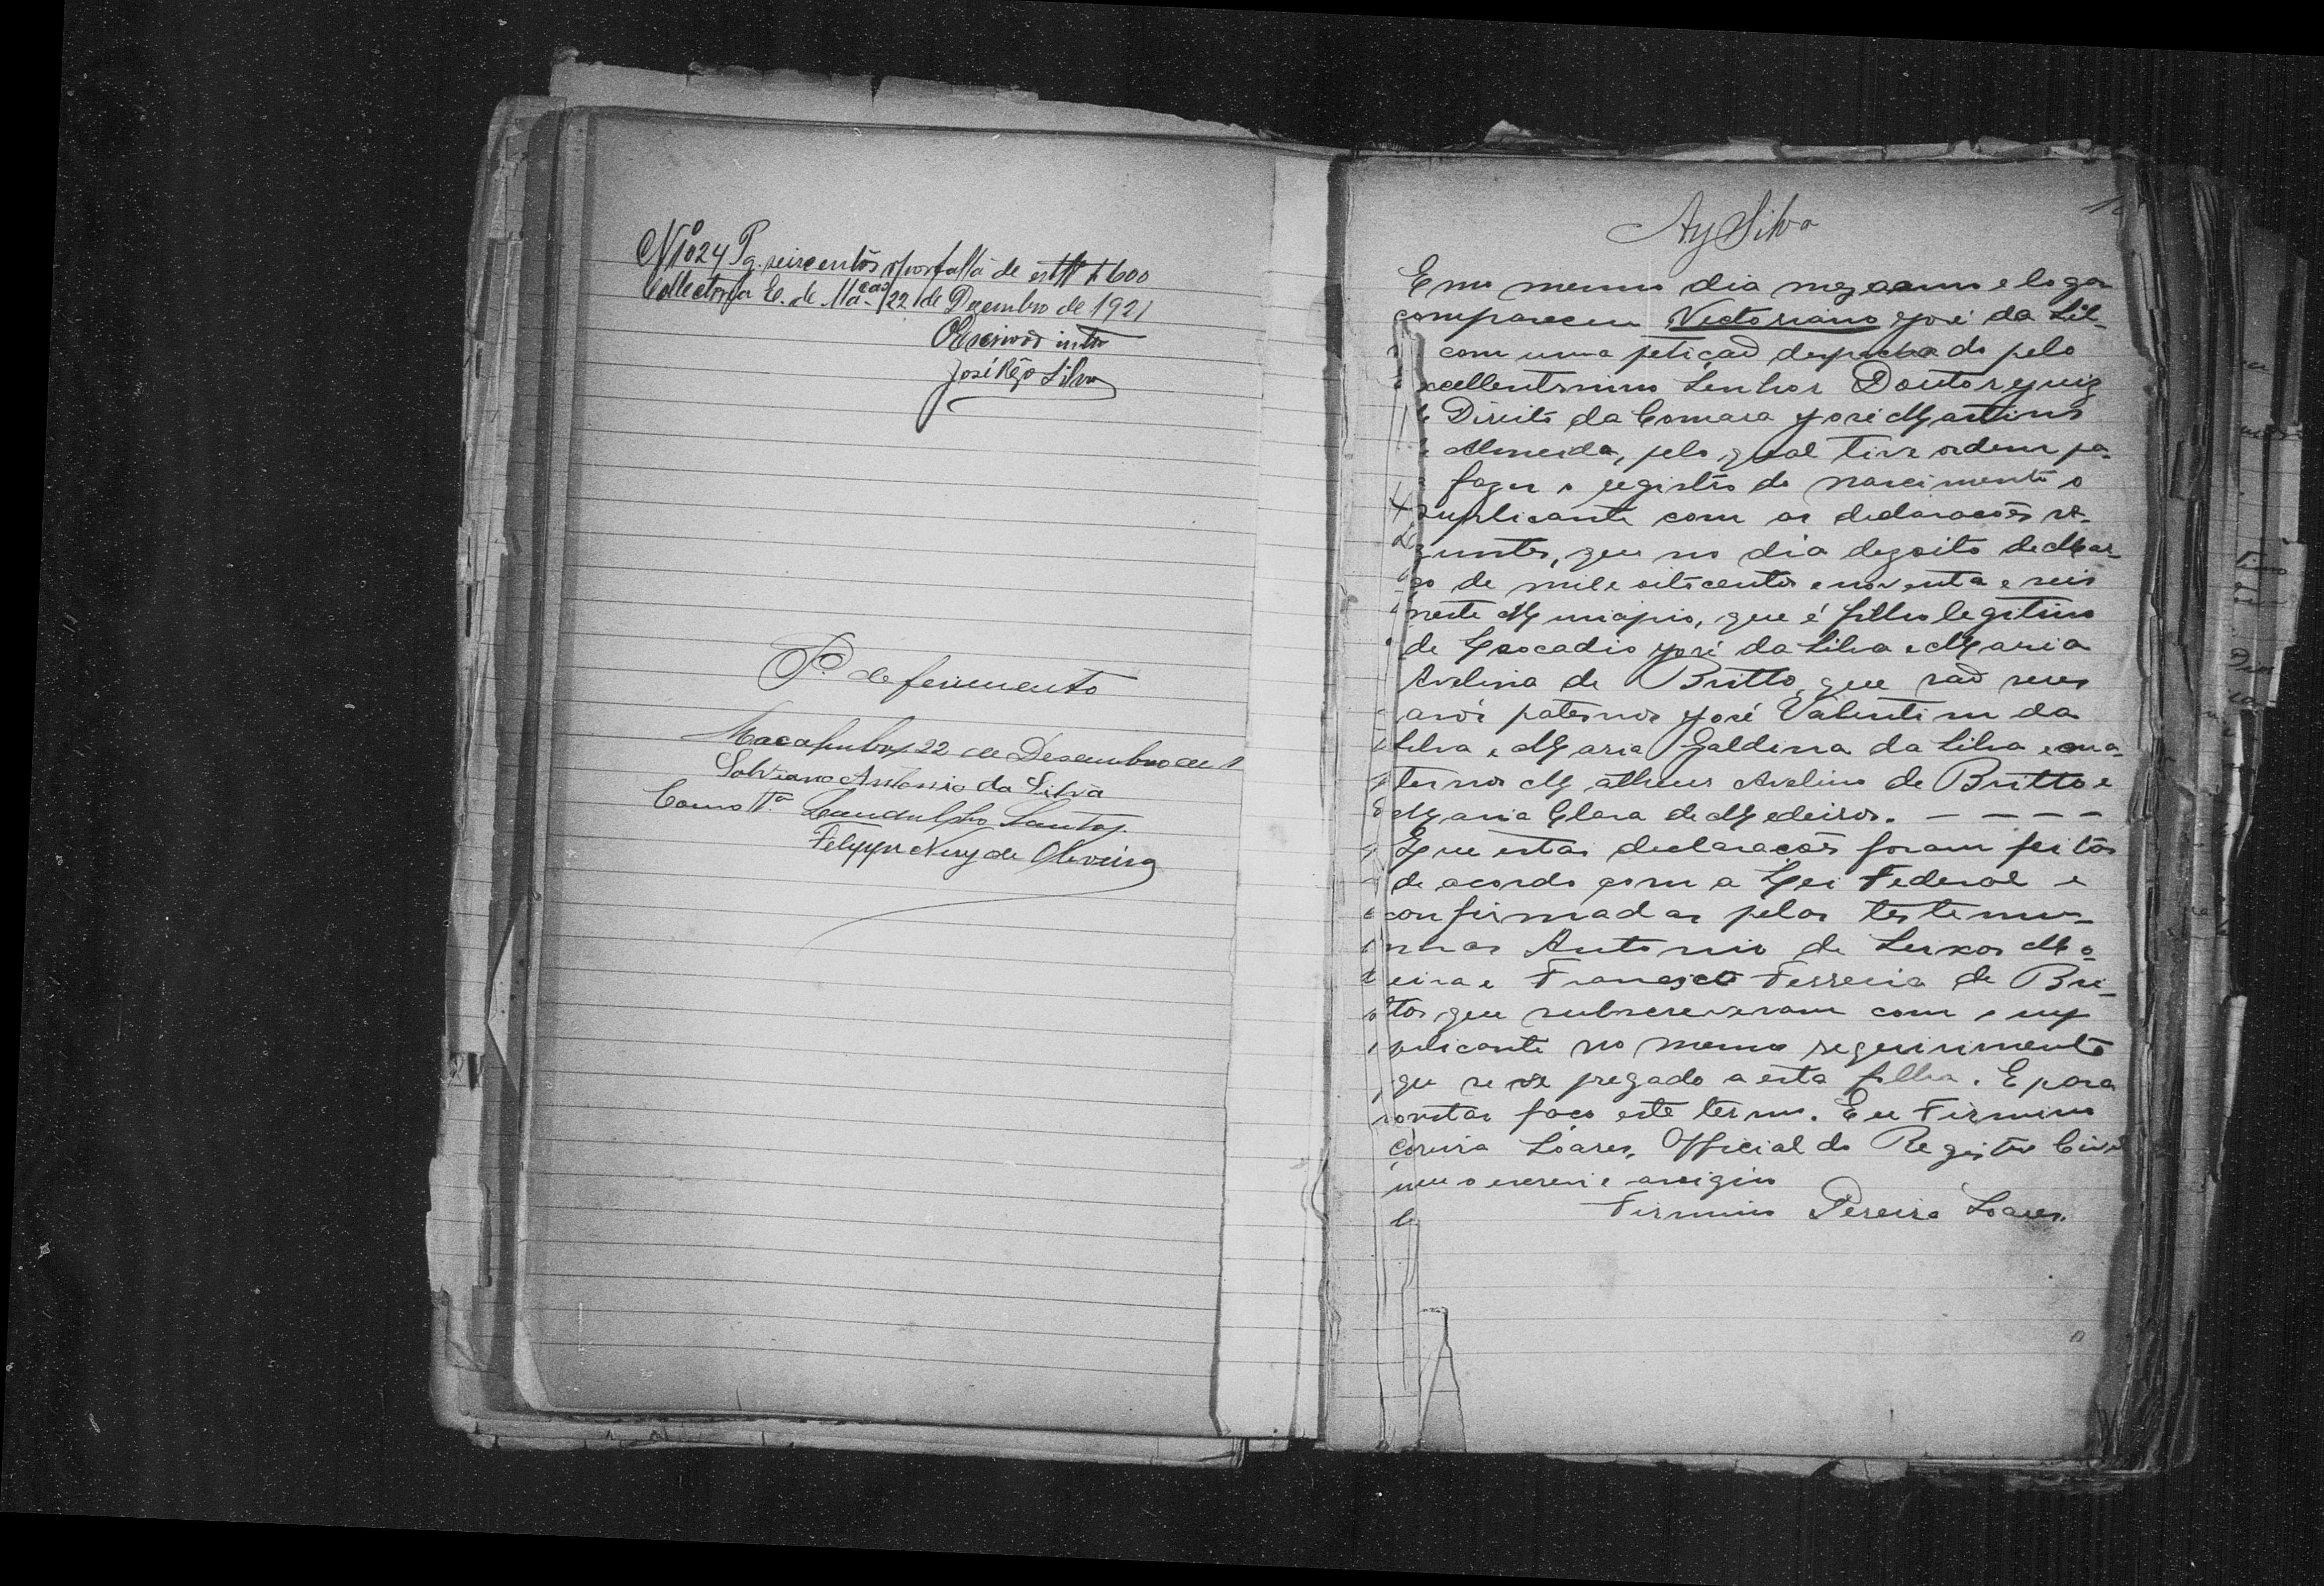 Nº 1024 Pg. seiscentos rs por falta de estª $600
Collectoria E. de Macas 22 de Dezembro de 1921
O Escrivão intº
José Rêgo Silva
P. deferimento
Macahuba 22 de Desembro de
Salviano Antonio da Silva
Como Tª Landulpho Santos.
Felippe Nery de Oliveira
Ay Silva
E no mesmo dia mez anno e logar
compareceu Victoriano José da Sil-
com uma petição despachada pelo
xcellentssimo Senhor Doutor Juiz
Direito da Comarca José Martins
Almeida, pelo qual tive ordem pa-
fazer o registro de nascimento o
supplicante com as declarações se-
guintes, que no dia dezoito de Mar-
ço de mil e oitocentos e noventa e seis
neste Municipio, que é filho legitimo
de Leocadio José da Silva e Maria
Avelina de Britto, que são seus
avós paternos José Valentim da
Silva e Maria Galdina da Silva e ma-
ternos Matheus Avelino de Britto e
Maria Clara de Medeiros. - - - -
Que estas declarações foram feitas
de acordo com a Lei Federal e
confirmadas pelas testemu-
nhas Antonio de Seixas Mo
eira e Francisco Ferreira de Bri-
tos que subscreveram com o sup
plicante no mesmo requirimento
que se vê pregado a esta folha. E para
constar faço este termo. Eu Firmino
ereira Soares, Official do Registro Civil
que o escrevi e assigno
Firmino Pereira Soares.